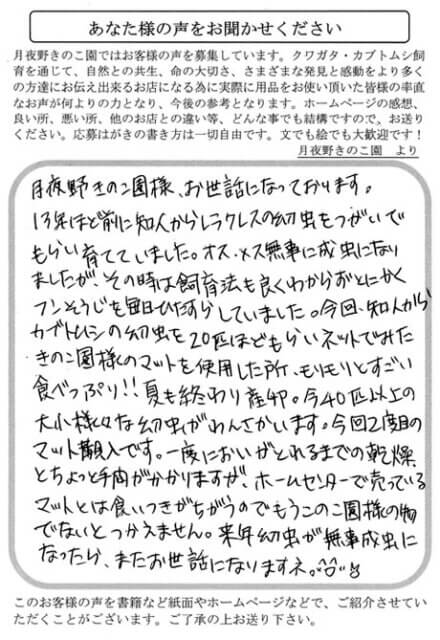 あなた様の声をお聞かせください
月夜野きのこ園ではお客様の声を募集しています。クワガタ・カブトムシ飼
育を通じて、自然との共生、命の大切さ、さまざまな発見と感動をより多く
の方達にお伝え出来るお店になる為に実際に用品をお使い頂いた皆様の率直
なお声が何よりの力となり、今後の参考となります。ホームページの感想、
良い所、悪い所、他のお店との違い等、どんな事でも結構ですので、お送り
ください。応募はがきの書き方は一切自由です。文でも絵でも大歓迎です！
月夜野きのこ園　より
月夜野きのこ園様、お世話になっております。
13年ほど前に知人からヘラクレスの幼虫をつがいで
もらい育てていました。オス・メス無事に成虫になり
ましたが、その時は飼育法も良くわからずとにかく
フンそうじを毎日ひたすらしていました。今回、知人から
カブトムシの幼虫を20匹ほどもらいネットでみた
きのこ園様のマットを使用した所、モリモリとすごい
食べっぷり!!夏も終わり産卵。今40匹以上の
大小様々な幼虫がわんさかいます。今回2度目の
マット購入です。一度においがとれるまでの乾燥
とちょっと手間がかかりますが、ホームセンターで売っている
マットとは食いつきがちがうのでもうこのこ園様の物
でないとつかえません。来年幼虫が無事成虫に
なったら、またお世話になりますネ。
このお客様の声を書籍など紙面やホームページなどで、ご紹介させてい
ただくことがございます。ご了承の上お送り下さい。